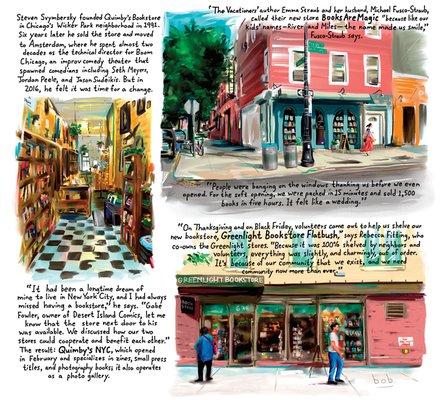 Steven Svymbersky founded Quimby's Bookstore
in Chicago's Wicker Park neighborhood in 1991.
Six years later he sold the store and moved
to Amsterdam, where he spent almost two
decades as the technical director for Boom
Chicago, an improv comedy theater that
spawned comedians including Seth Meyers,
Jordan Peele, and Jason Sudeikis. But in
2016, he felt it was time for a change.
"It had been a longtime dream of
mine to live in New York City, and I had always
missed having a bookstore," he says. "Gabe
Fowler, owner of Desert Island Comics, let me
know that the store next door to his
was available. We discussed how our two
stores could cooperate and benefit each other."
The result: Quimby's NYC, which opened
in February and specializes in zines, small press
titles, and photography books; it also operates
as a photo gallery.
"The Vacationers" author Emma Straub and her husband, Michael Fusco-Straub,
called their new store Books Are Magic "because like our
kids' names—River and Miles—the name made us smile,"
Fusco-Straub says.
"People were banging on the windows thanking us before we even
opened. For the soft opening, we were packed in 15 minutes and sold 1,500
books in five hours. It felt like a wedding."
"On Thanksgiving and on Black Friday, volunteers came out to help us shelve our
new bookstore, Greenlight Bookstore Flatbush," says Rebecca Fitting, who
co-owns the Greenlight stores. "Because it was 100% shelved by neighbors and
volunteers, everything was slightly, and charmingly, out of order.
It's because of our community that we exist, and we need
community now more than ever."
GREENLIGHT BOOKSTORE
bob